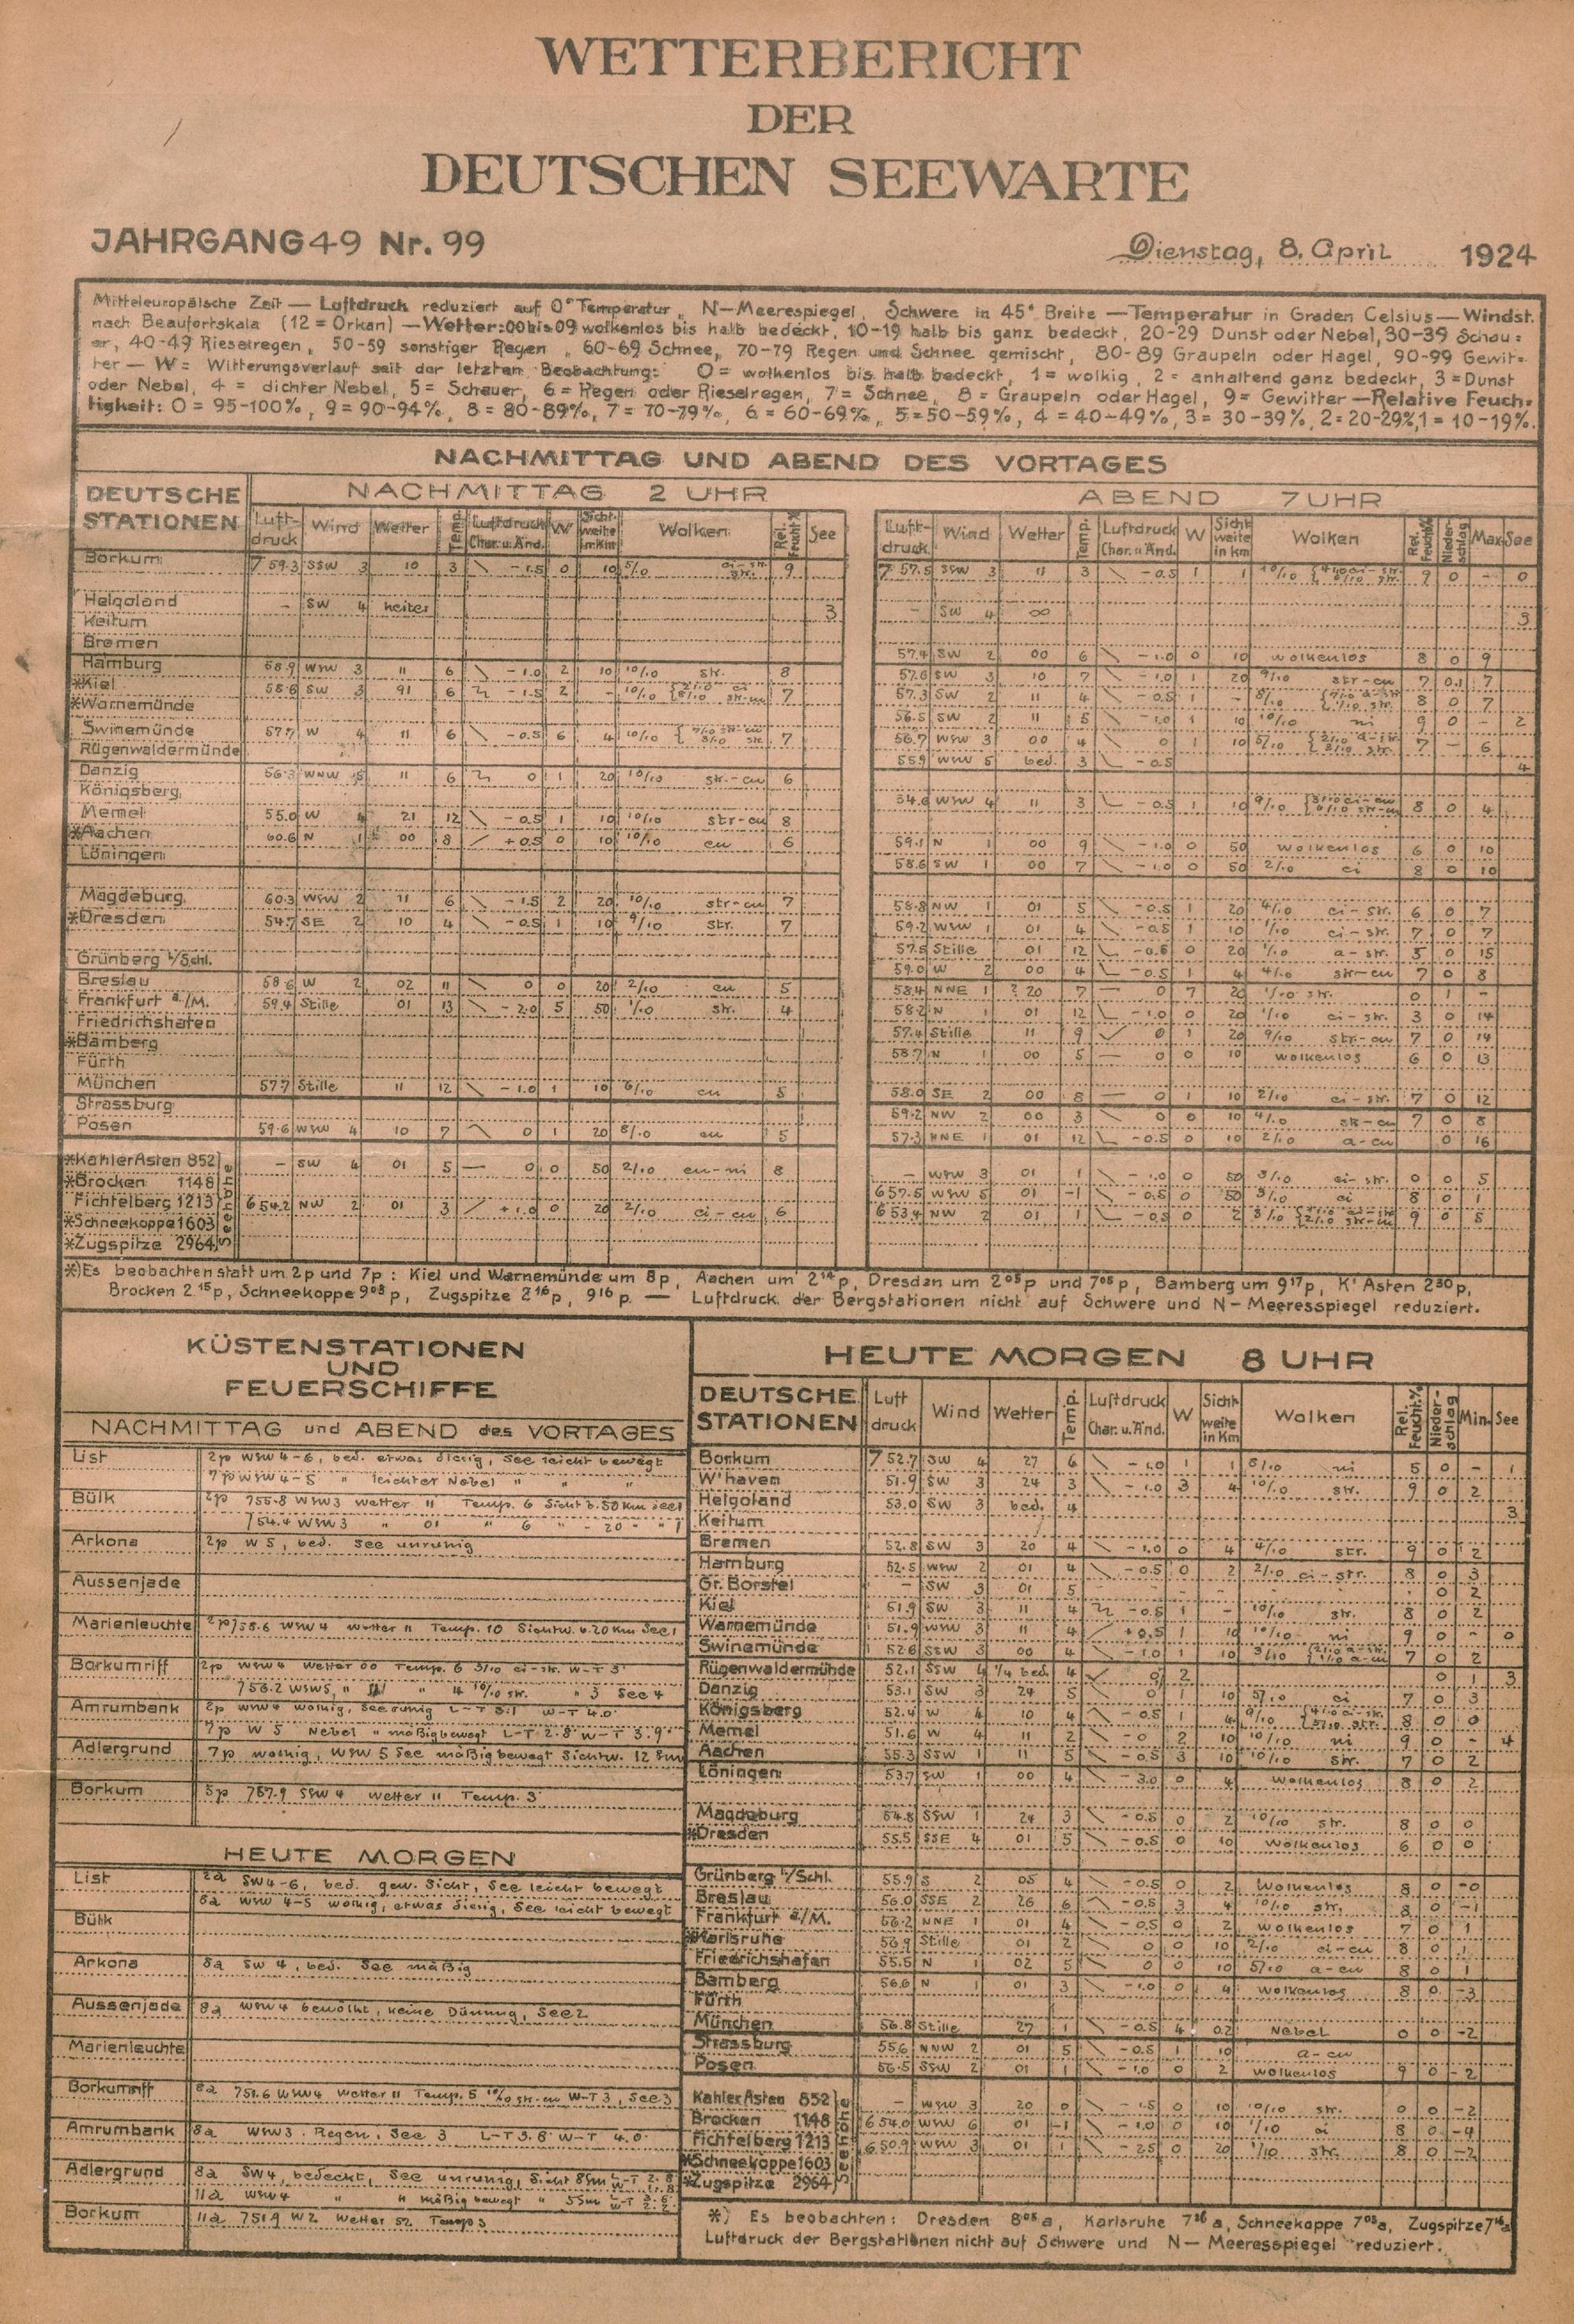 WETTERBERICHT
DER
DEUTSCHEN SEEWARTE
JAHRGANG 49 Nr. 99
Dienstag, 8. April 1924
Mitteleuropäische Zeit — Luftdruck reduziert auf 0° Temperatur, N-Meerespiegel, Schwere in 45° Breite — Temperatur in Graden Celsius — Windst.
nach Beaufortskala (12 = Orkan) — Wetter: 00 bis 09 wolkenlos bis halb bedeckt, 10-19 halb bis ganz bedeckt, 20-29 Dunst oder Nebel, 30-39 Schau=
er, 40-49 Rieselregen, 50-59 sonstiger Regen, 60-69 Schnee, 70-79 Regen und Schnee gemischt, 80-89 Graupeln oder Hagel, 90-99 Gewit=
ter — W = Witterungsverlauf seit der letzten Beobachtung: 0 = wolkenlos bis halb bedeckt, 1 = wolkig, 2 = anhaltend ganz bedeckt, 3 = Dunst
oder Nebel, 4 = dichter Nebel, 5 = Schauer, 6 = Regen oder Rieselregen, 7 = Schnee, 8 = Graupeln oder Hagel, 9 = Gewitter — Relative Feuch=
tigkeit: 0 = 95-100%, 9 = 90-94%, 8 = 80-89%, 7 = 70-79%, 6 = 60-69%, 5 = 50-59%, 4 = 40-49%, 3 = 30-39%, 2 = 20-29%, 1 = 10-19%.
NACHMITTAG UND ABEND DES VORTAGES
DEUTSCHE STATIONEN
NACHMITTAG 2 UHR
Luft-druck Wind Wetter Temp. Luftdruck Char. u. Änd. W Sicht-weite in Km Wolken Rel. Feucht.% See
ABEND 7 UHR
Luft-druck Wind Wetter Temp. Luftdruck Char. u. Änd. W Sicht-weite in km Wolken Rel. Feucht.% Nieder-schlag Max See
Borkum 759.3 SSW 3 10 3 -1.5 0 10 5/10 ci-str. str. 9
757.5 SSW 3 11 3 -0.5 1 1 10/10 9 0 - 0
Helgoland - SW 4 heiter 3
- SW 4 00 3
Keitum
Bremen
57.4 SW 2 00 6 -1.0 0 10 wolkenlos 8 0 9
Hamburg 58.9 WSW 3 11 6 -1.0 2 10 10/10 str. 8
57.6 SW 3 10 7 -1.0 1 20 9/10 str-cu 7 0.1 7
*Kiel 58.6 SW 3 91 6 -1.5 2 - 10/10 7
57.3 SW 2 11 4 -0.5 1 - 8/10 8 0 7
*Warnemünde
56.5 SW 2 11 5 -1.0 1 10 10/10 ni 9 0 - 2
Swinemünde 57.7 W 4 11 6 -0.5 6 4 10/10 7
56.7 WSW 3 00 4 0 1 10 5/10 7 - 6
Rügenwaldermünde
55.9 WSW 5 bed. 3 -0.5 4
Danzig 56.3 WNW 5 11 6 0 1 20 10/10 str.-cu 6
Königsberg
54.6 WSW 4 11 3 -0.5 1 10 9/10 8 0 4
Memel 55.0 W 4 21 12 -0.5 1 10 10/10 str-cu 8
*Aachen 60.6 N 1 00 8 +0.5 0 10 10/10 cu 6
59.1 N 1 00 9 -1.0 0 50 wolkenlos 6 0 10
Löningen
58.6 SW 1 00 7 -1.0 0 50 2/10 ci 8 0 10
Magdeburg 60.3 WSW 2 11 6 -1.5 2 20 10/10 str-cu 7
58.8 NW 1 01 5 -0.5 1 20 4/10 ci-str. 6 0 7
*Dresden 54.7 SE 2 10 4 -0.5 1 10 9/10 str. 7
59.2 WSW 1 01 4 -0.5 1 10 1/10 ci-str. 7 0 7
57.5 Stille 01 12 0 20 1/10 a-str. 5 0 15
Grünberg i/Schl.
59.0 W 2 00 4 -0.5 1 4 4/10 str-cu 7 0 8
Breslau 58.6 W 2 02 11 0 0 20 2/10 cu 5
58.4 NNE 1 20 7 0 7 20 1/10 str. 0 1 -
Frankfurt a./M. 59.4 Stille 01 13 -2.0 5 50 1/10 str. 4
58.2 N 1 01 12 -1.0 0 20 1/10 ci-str. 3 0 14
Friedrichshafen
57.4 Stille 11 9 0 1 20 9/10 str-cu 7 0 14
*Bamberg
58.7 N 1 00 5 0 0 10 wolkenlos 6 0 13
Fürth
München 57.7 Stille 11 12 -1.0 1 10 6/10 cu 5
58.0 SE 2 00 8 0 1 10 2/10 ci-str. 7 0 12
Strassburg
59.2 NW 2 00 3 0 0 10 4/10 str-cu 7 0 8
Posen 59.6 WSW 4 10 7 0 1 20 8/10 cu 5
57.3 NNE 1 01 12 -0.5 0 10 2/10 a-cu 0 16
Seehöhe
*Kahler Asten 852 - SW 4 01 5 0 0 50 2/10 cu-ni 8
- WSW 3 01 1 -1.0 0 50 3/10 ci-str. 0 0 5
*Brocken 1148
657.5 WSW 5 01 -1 -0.5 0 50 3/10 ci 8 0 1
Fichtelberg 1213 654.2 NW 2 01 3 +1.0 0 20 2/10 ci-cu 6
653.4 NW 2 01 1 -0.5 0 2 3/10 9 0 5
*Schneekoppe 1603
*Zugspitze 2964
*) Es beobachten statt um 2p und 7p: Kiel und Warnemünde um 8p, Aachen um 2¹⁴p, Dresden um 2⁰⁵p und 7⁰⁵p, Bamberg um 9¹⁷p, K' Asten 2³⁰p,
Brocken 2¹⁵p, Schneekoppe 9⁰³p, Zugspitze 2¹⁶p, 9¹⁶p. — Luftdruck der Bergstationen nicht auf Schwere und N-Meeresspiegel reduziert.
KÜSTENSTATIONEN
UND
FEUERSCHIFFE
NACHMITTAG und ABEND des VORTAGES
List 2p WSW 4-6, bed. etwas diesig, See leicht bewegt
7p WSW 4-5 " leichter Nebel " " "
Bülk 2p 755.8 WSW3 Wetter 11 Temp. 6 Sicht b. 50 km See1
754.4 WSW 3 " 01 " 6 " - 20 " " 1
Arkona 2p W 5, bed. See unruhig
Aussenjade
Marienleuchte 2p 758.6 WSW 4 Wetter 11 Temp. 10 Sichtw. b. 20 Km See 1
Borkumriff 2p WSW4 Wetter 00 Temp. 6 3/10 ci-str. W-T 3
756.2 WSW5, " " 4 10/10 str. " 3 See 4
Amrumbank 2p WNW 4 wolkig, See ruhig L-T 5.1 W-T 4.0
7p W 5 Nebel " mäßig bewegt L-T 2.8 W-T 3.9
Adlergrund 7p wolkig, WSW 5 See mäßig bewegt Sichtw. 12 sm
Borkum 5p 757.9 SSW 4 Wetter 11 Temp. 3
HEUTE MORGEN
List 2a SW 4-6, bed. gew. Sicht, See leicht bewegt
8a WSW 4-5 wolkig, etwas diesig, See leicht bewegt
Bülk
Arkona 8a SW 4, bed. See mäßig
Aussenjade 8a WSW 4 bewölkt, keine Dünung, See 2
Marienleuchte
Borkumriff 8a 751.6 WSW4 Wetter 11 Temp. 5 10/10 str-cu W-T 3, See 3
Amrumbank 8a WSW3 Regen, See 3 L-T 3.8 W-T 4.0
Adlergrund 8a SW4, bedeckt, See unruhig, Sicht 8sm
11a WSW 4 " " mäßig bewegt " 5sm
Borkum 11a 751.9 W2 Wetter 52 Temp 3
HEUTE MORGEN 8 UHR
DEUTSCHE STATIONEN Luft druck Wind Wetter Temp. Luftdruck Char. u. Änd. W Sicht-weite in Km Wolken Rel. Feucht.% Nieder-schlag Min. See
Borkum 752.7 SW 4 27 6 -1.0 1 1 8/10 ni 5 0 - 1
W'haven 51.9 SW 3 24 3 -1.0 3 4 10/10 str. 9 0 2
Helgoland 53.0 SW 3 bed. 4 3
Keitum
Bremen 52.8 SW 3 20 4 -1.0 0 4 4/10 str. 9 0 2
Hamburg 52.5 WSW 2 01 4 -0.5 0 2 2/10 ci-str. 8 0 3
Gr. Borstel - SW 3 01 5 - - - - - 0 2
Kiel 51.9 SW 3 11 4 -0.5 1 - 10/10 str. 8 0 2
Warnemünde 51.9 WSW 3 11 4 +0.5 1 10 10/10 ni 9 0 - 0
Swinemünde 52.6 SSW 3 00 4 -1.0 1 10 3/10 7 0 2
Rügenwaldermünde 52.1 SSW 4 1/4 bed. 4 0 2 0 1 3
Danzig 53.1 SW 3 24 5 0 1 10 5/10 ci 7 0 3
Königsberg 52.4 W 4 10 4 -0.5 1 4 9/10 8 0 0
Memel 51.6 W 4 11 2 -0 2 10 10/10 ni 9 0 - 4
Aachen 55.3 SSW 1 11 5 -0.5 3 10 10/10 str. 7 0 2
Löningen 53.7 SW 1 00 4 -3.0 0 4 wolkenlos 8 0 2
Magdeburg 54.8 SSW 1 24 3 -0.5 0 2 10/10 str. 8 0 0
*Dresden 55.5 SSE 4 01 5 -0.5 0 10 wolkenlos 6 0 0
Grünberg i/Schl. 55.9 S 2 05 4 -0.5 0 2 wolkenlos 8 0 -0
Breslau 56.0 SSE 2 26 6 -0.5 3 4 10/10 str. 8 0 -1
Frankfurt a/M. 56.2 NNE 1 01 4 -0.5 0 2 wolkenlos 7 0 1
*Karlsruhe 56.9 Stille 01 2 0 0 10 2/10 ci-cu 8 0 1
Friedrichshafen 55.5 N 1 02 5 0 0 10 5/10 a-cu 8 0 1
Bamberg 56.6 N 1 01 3 -1.0 0 4 wolkenlos 8 0 -3
Fürth
München 56.8 Stille 27 1 -0.5 4 0.2 Nebel 0 0 -2
Strassburg 55.6 NNW 2 01 5 -0.5 1 10 a-cu
Posen 56.5 SSW 2 01 1 -1.0 0 2 wolkenlos 9 0 -2
Seehöhe
Kahler Asten 852 - WSW 3 20 0 -1.5 0 10 10/10 str. 0 0 -2
Brocken 1148 654.0 WSW 6 01 -1 -1.0 0 10 1/10 ci 8 0 -4
Fichtelberg 1213 650.9 WSW 3 01 1 -2.5 0 20 1/10 str. 8 0 -2
*Schneekoppe 1603
*Zugspitze 2964
*) Es beobachten: Dresden 8⁰⁵a, Karlsruhe 7³⁶a, Schneekoppe 7⁰³a, Zugspitze 7¹⁶a
Luftdruck der Bergstationen nicht auf Schwere und N-Meeresspiegel reduziert.